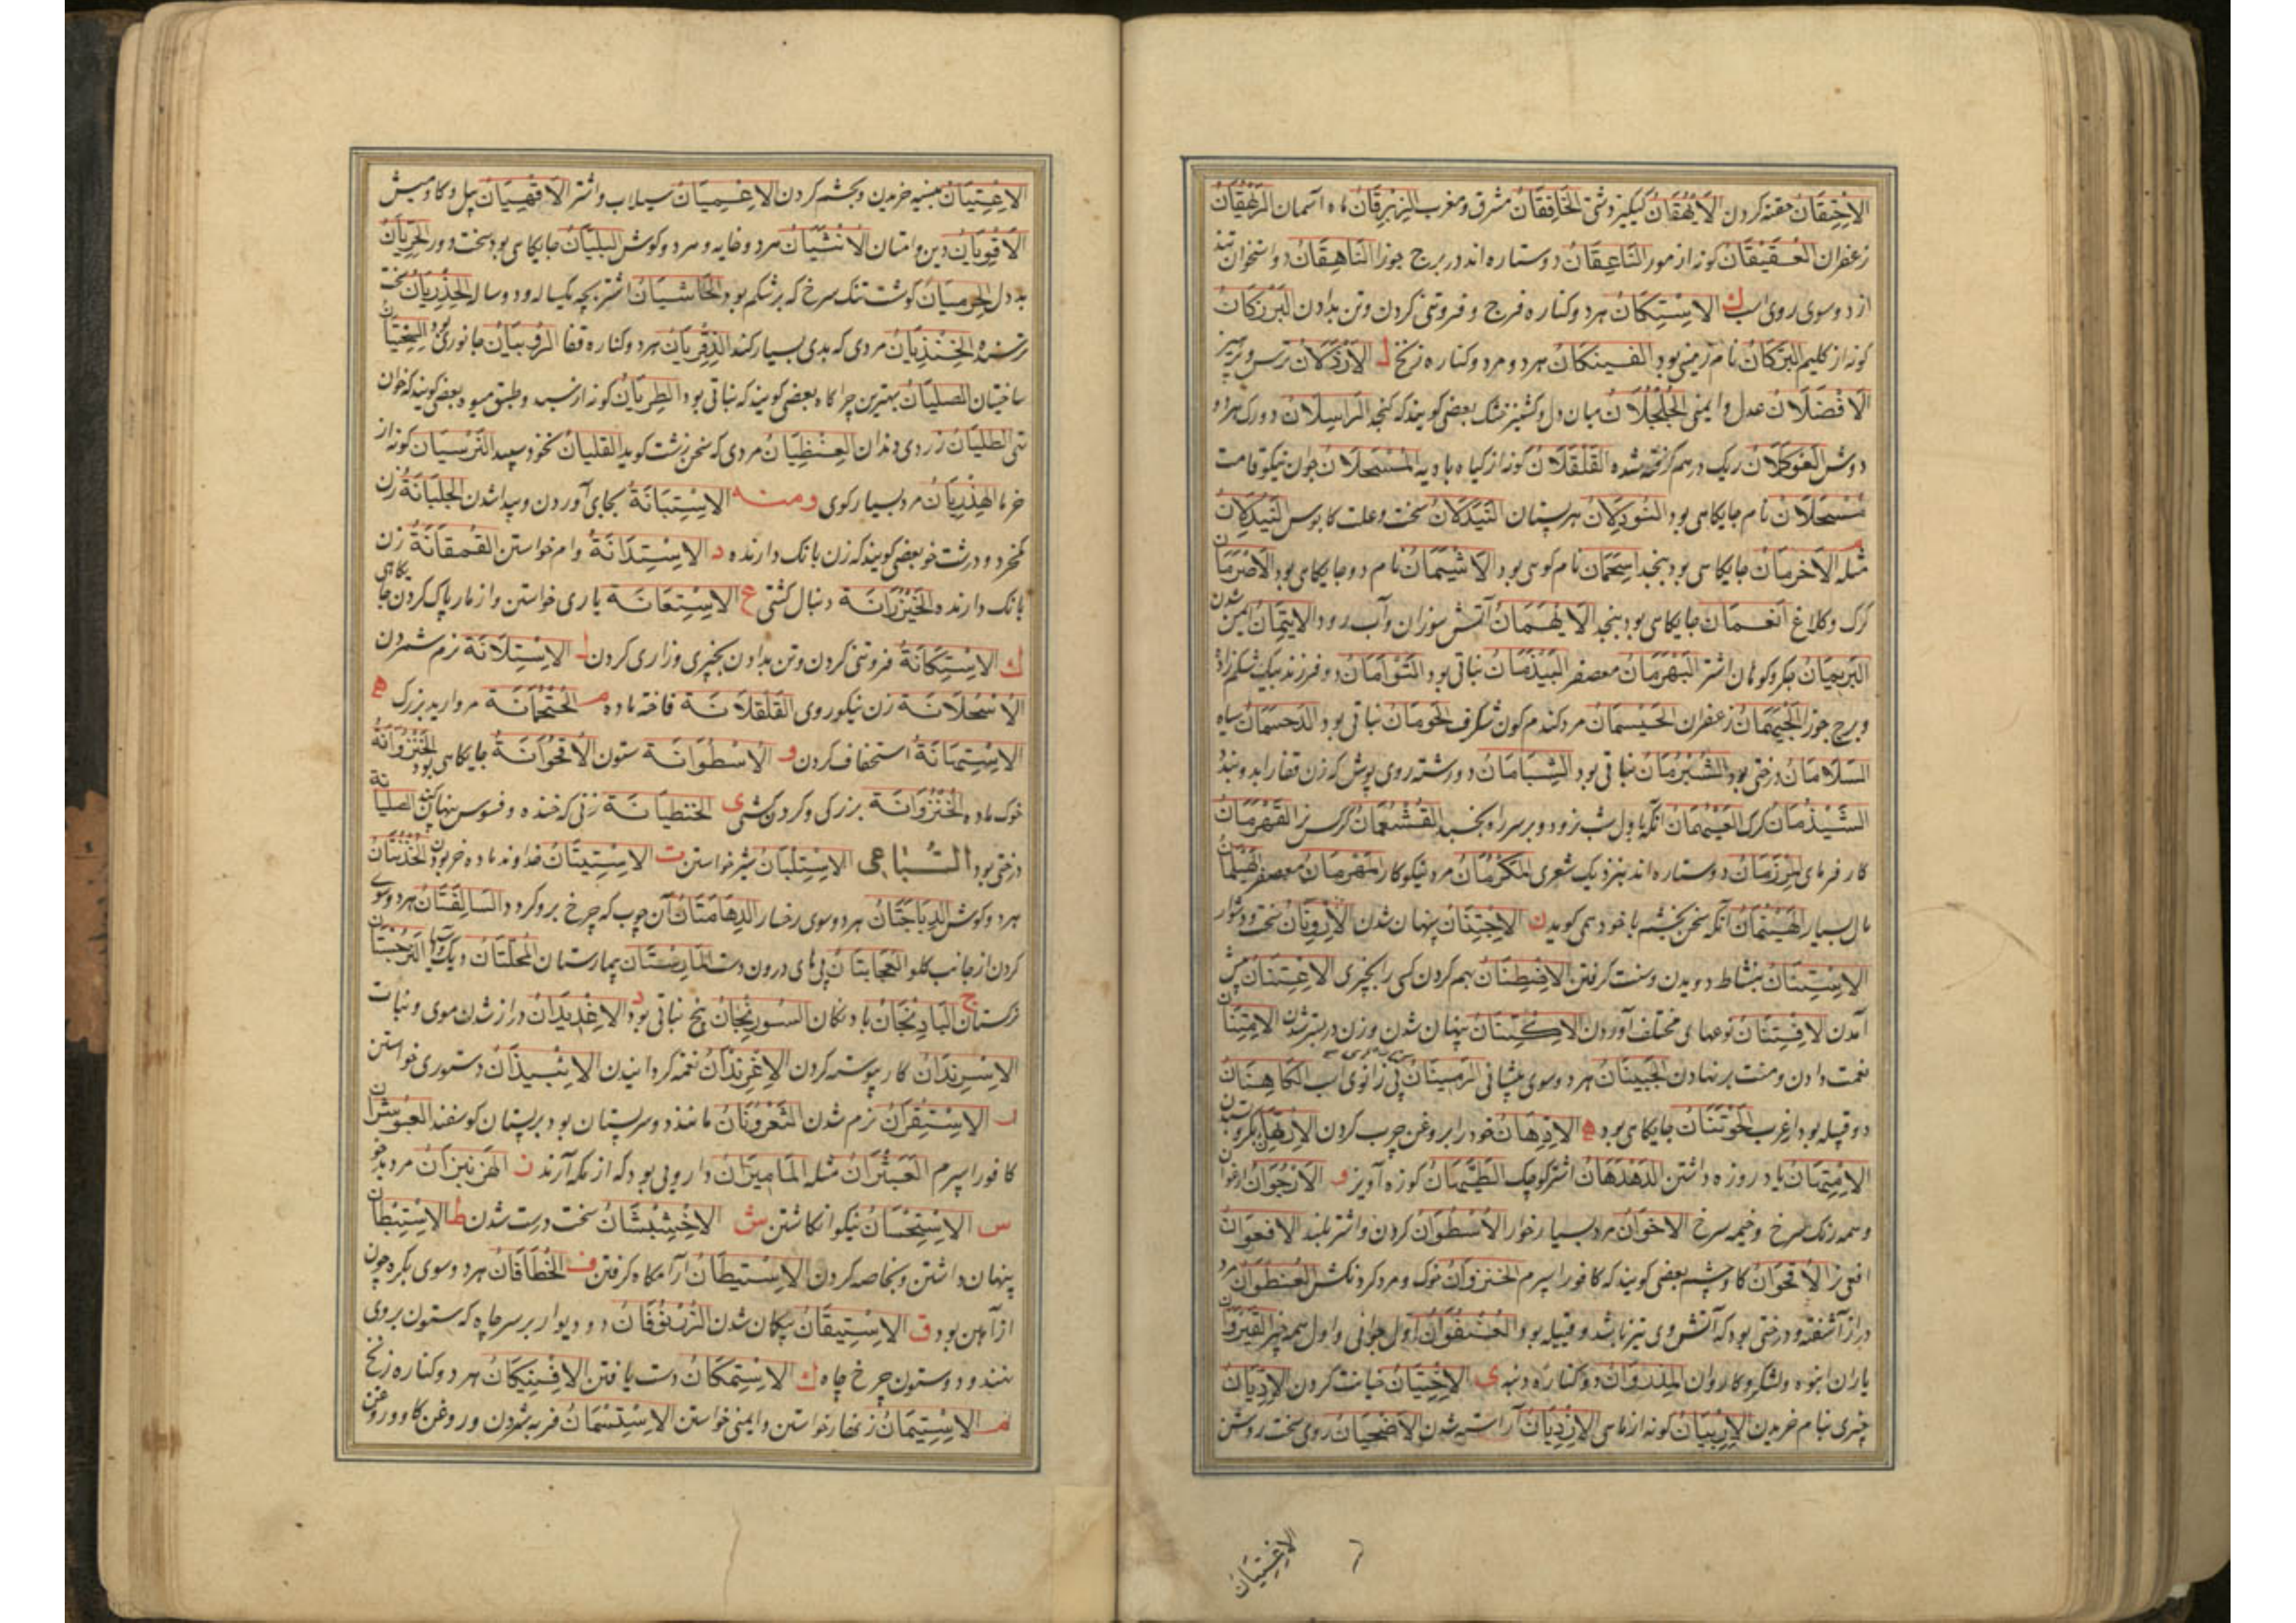 الاحتقان حقنه کردن الایهقان کیکیز دشتی الخافقان مشرق و مغرب الزبرقان ماه آسمان الزهقان
زعفران العقیقان کونه از مور الناعقان دو ستاره اند در برج جوزا الناهقان دو استخوان تند
از دو سوی روی اسب ك الاستکان هر دو کناره فرج و فروتنی کردن و تن بدادن البرزکان
کونه از کلیم البرکان نام زمینی بود الفنیکان هر دو مرد و کناره زنخ ل الازدلان ترس و پرهیز
الافضلان عدل و ایمنی الجلجلان میان دل و کشنیز خشک بعضی کویند که کنجد الراسلان دو رک هر دو
دوش العوکلان ریک درهم کرفته شده القلقلان کونه از کیاه بادیه المسحلان جوان نیکو قامت
مسحلان نام جایکاهی بود النودلان هر پستان النیدلان سخت و علت کابوس النیدلان
مثله م الاخرمان جایکاهی بود بنجد اسحمان نام کوهی بود الاشیمان نام دو جایکاهی بود الاصرمان
کرک و کلاغ انعمان جایکاهی بود بنجد الایهمان آتش سوزان و آب رود الایتمان ایمن شدن
البریمان جکر و کوهان اشتر البهرمان معصفر البیذمان نباتی بود التوامان دو فرزند بیک شکم زاد
و برج جوزا الجیهمان زعفران الحیسمان مرد کندم کون شکرف الحومان نباتی بود الدحسمان سیاه
السلامان درختی بود الشبرمان نباتی بود الشبامان دو رشته روی پوش که زن قفا را بدو بندد
الشیذمان کرک العیثمان آنکه باول شب نزود و بر سر راه بخسبد القشعمان کرکس نر القهرمان
کار فرمای المرزمان دو ستاره اند بنزدیک شعری المکرمان مرد نیکو کار المفرمان معصفر الهیلمان
مال بسیار الهینمان آنکه سخن بخشم با خود همی کوید ن الاجتنان پنهان شدن الارونان سخت و دشوار
الاستنان بنشاط دویدن و سنت کرفتن الافتطنان بهم کردن کسی را بچیزی الاعتنان پیش
آمدن الافتنان نوعهای مختلف آوردن الاکتنان پنهان شدن و زن در بستر شدن الامتنان
نعمت دادن و منت بر نهادن الجبینان هر دو سوی پیشانی الرمینان پی زانوی اسب الکاهنان
دو قبیله بود از عرب الحوتنان جایکاهی بود ه الادهان خود را بروغن چرب کردن الارتهان بکرو ستدن
الامتهان یاد روزه داشتن الدهدهان اشتر کوچک الطیهان کوزه آویز و الارجوان ارغوان
و سمه رنک سرخ و خیمه سرخ الاخوان مرد بسیار خوار الاسطوان کردن و اشتر بلند الافعوان
افعی نر الاقحوان کاو چشم بعضی کویند که کافور اسپرم الخنزوان خوک و مرد کردنکش العنظوان مرد
دراز آشفته و درختی بود که آتش وی تیز نباشد و قبیله بود العنفوان اول جوانی و اول همه چیز القیروان
یاران انبوه و لشکر و کاروان المذروان دو کناره دنبه ی الاختیان خیانت کردن الادیان
چیزی بنام خریدن الاربیان کونه از ماهی الازدیان آراسته شدن الاضحیان روی سخت روشن
الاغتیان
الاعتیان بنسیه خریدن و بچشم کردن الاعمیان سیلاب و اشتر الاقهبان پیل و کاومیش
الاقویان دین و امتان الانثیان مرد و خایه و مرد و کوش البلیان جایکاهی بود سخت دور الجریان
بد دل الحرمیان کوشت تنک سرخ که بر شکم بود الحاشیان اشتر بچه یکساله و دو ساله الحذریان سخت
ترسنده الخنذیان مردی که بدی بسیار کند الذفریان هر دو کناره قفا جانوری بود السختیان
ساختیان الصلیان بهترین چراکاه بعضی کویند که نباتی بود الطریان کونه از سبد و طبق میوه بعضی کویند که خوان
تهی الطلیان زردی دندان العنظیان مردی که سخن زشت کوید القلیان نخود سپید النرسیان کونه از
خرما الهذریان مرد بسیار کوی ومنه الاستبانة بجای آوردن و پیدا شدن الجلبانة زن
کم خرد و درشت خو بعضی کویند که زن بانک دارنده د الاستدانة وام خواستن القمقانة زن
بانک دارنده الخیزرانة دنبال کشتی ع الاستعانة یاری خواستن و از مار پاک کردن جایکاهی
ك الاستکانة فروتنی کردن و تن بدادن بچیزی و زاری کردن ل الاستلانة نرم شمردن
الاسحلانة زن نیکو روی القلقلانة فاخته ماده م الخثحمانة مروارید بزرک ه
الاستهانة استخفاف کردن و الاسطوانة ستون الاقحوانة جایکاهی بود الخنزوانة
خوک ماده الخنزوانة بزرکی و کردن کشی ی الخنظیانة زنی که خنده و فسوس پنهان کند الصلیانة
درختی بود السباعی الاستلبان شیر خواستن ت الاستیتان خداوند ماده خر بودن الخذنتان
هر دو کوش الدیباجتان هر دو سوی رخسار الدهامتان آن چوب که چرخ برو کردد السالفتان هر دو سوی
کردن از جانب کلو العجایتان پی های درون دست المارستان بیمارستان المحلتان دیک و آسیا الترجستان
ترکستان ج الباذنجان بادنکان السورنجان بیخ نباتی بود د الاغدیدان دراز شدن موی و نبات
الاسرندان کار پیوسته کردن الاغرندان نغمه کردانیدن الاستیذان دستوری خواستن
ر الاستقران نرم شدن الثعروران مانند دو سر پستان بود بر پستان کوسفند العبوثران
کافور اسپرم العبثران مثله المامیران دارویی بود که از مکه آرند ز الهزنبزان مرد بدخو
س الاستحسان نیکو انکاشتن ش الاخشیشان سخت درست شدن ط الاستبطان
پنهان داشتن و بخاصه کردن الاستیطان آرامکاه کرفتن ف الخطافان هر دو سوی بکره چون
از آهن بود ق الاستیقان بیکمان شدن الزرنوقان دو دیوار بر سر چاه که ستون بر وی
نهند و دو ستون چرخ چاه ك الاستمکان دست یافتن الافنیکان هر دو کناره زنخ
م الاستیمان زنهار خواستن و ایمنی خواستن الاستسمان فربه شمردن و روغن کاو و روغن